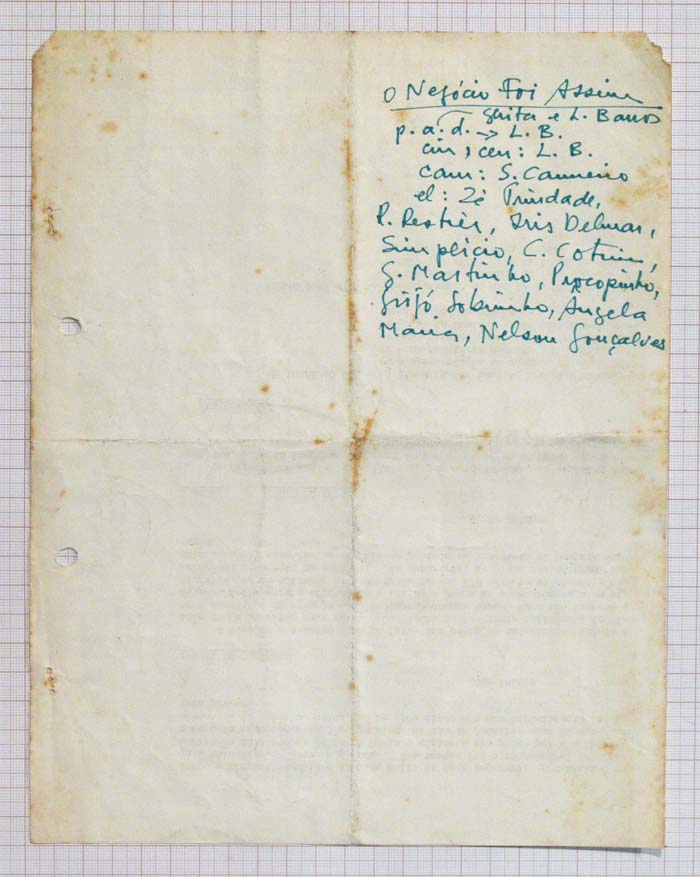 O Negócio Foi Assim
Gerita e L. Barros
p. a. d. → L. B.
cin, cen: L. B.
cam: S. Carneiro
el: Zé Trindade,
R. Restier, Iris Delmar,
Simplício, C. Cotrim,
G. Martinho, Procopinho,
Grijó Sobrinho, Ângela
Maria, Nelson Gonçalves